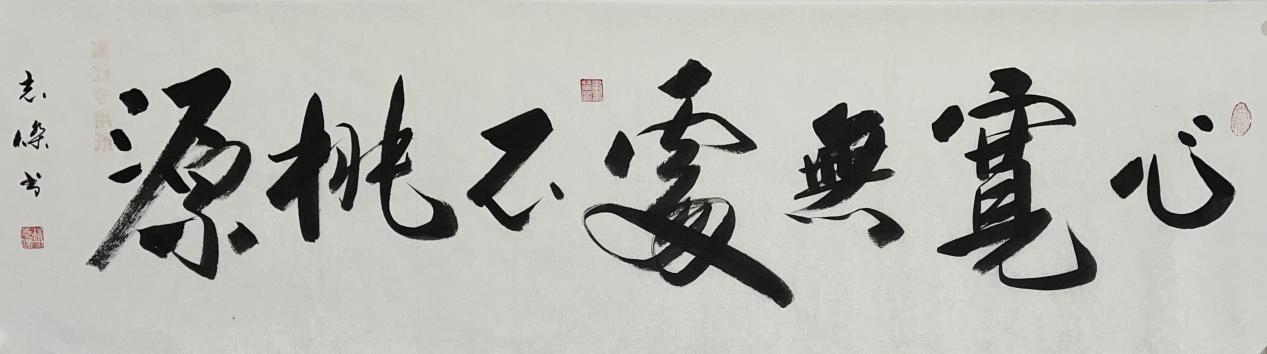 心寬無處不桃源
志傑书